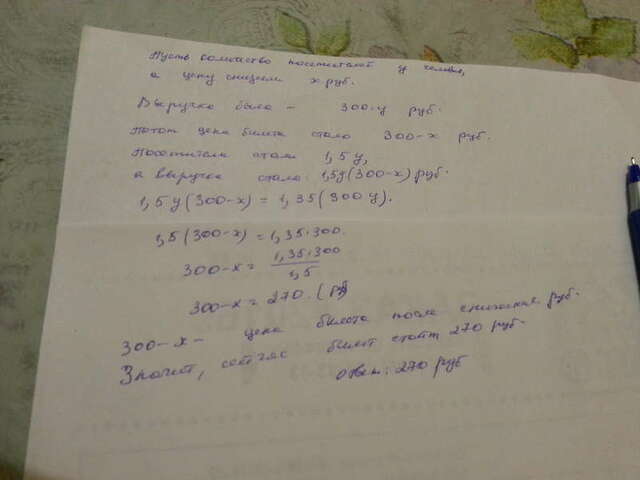 Пусть количество посетителей y человек,
а цену снизили x руб.
Выручка была - 300·y руб.
Потом цена билета стала 300-x руб.
Посетителей стало 1,5y,
а выручка стала: 1,5y(300-x) руб.
1,5y(300-x) = 1,35(300y).
1,5(300-x) = 1,35·300.
300-x = 1,35·300
1,5
300-x = 270. (руб)
300-x - цена билета после снижения руб.
Значит, сейчас билет стоит 270 руб.
Ответ: 270 руб